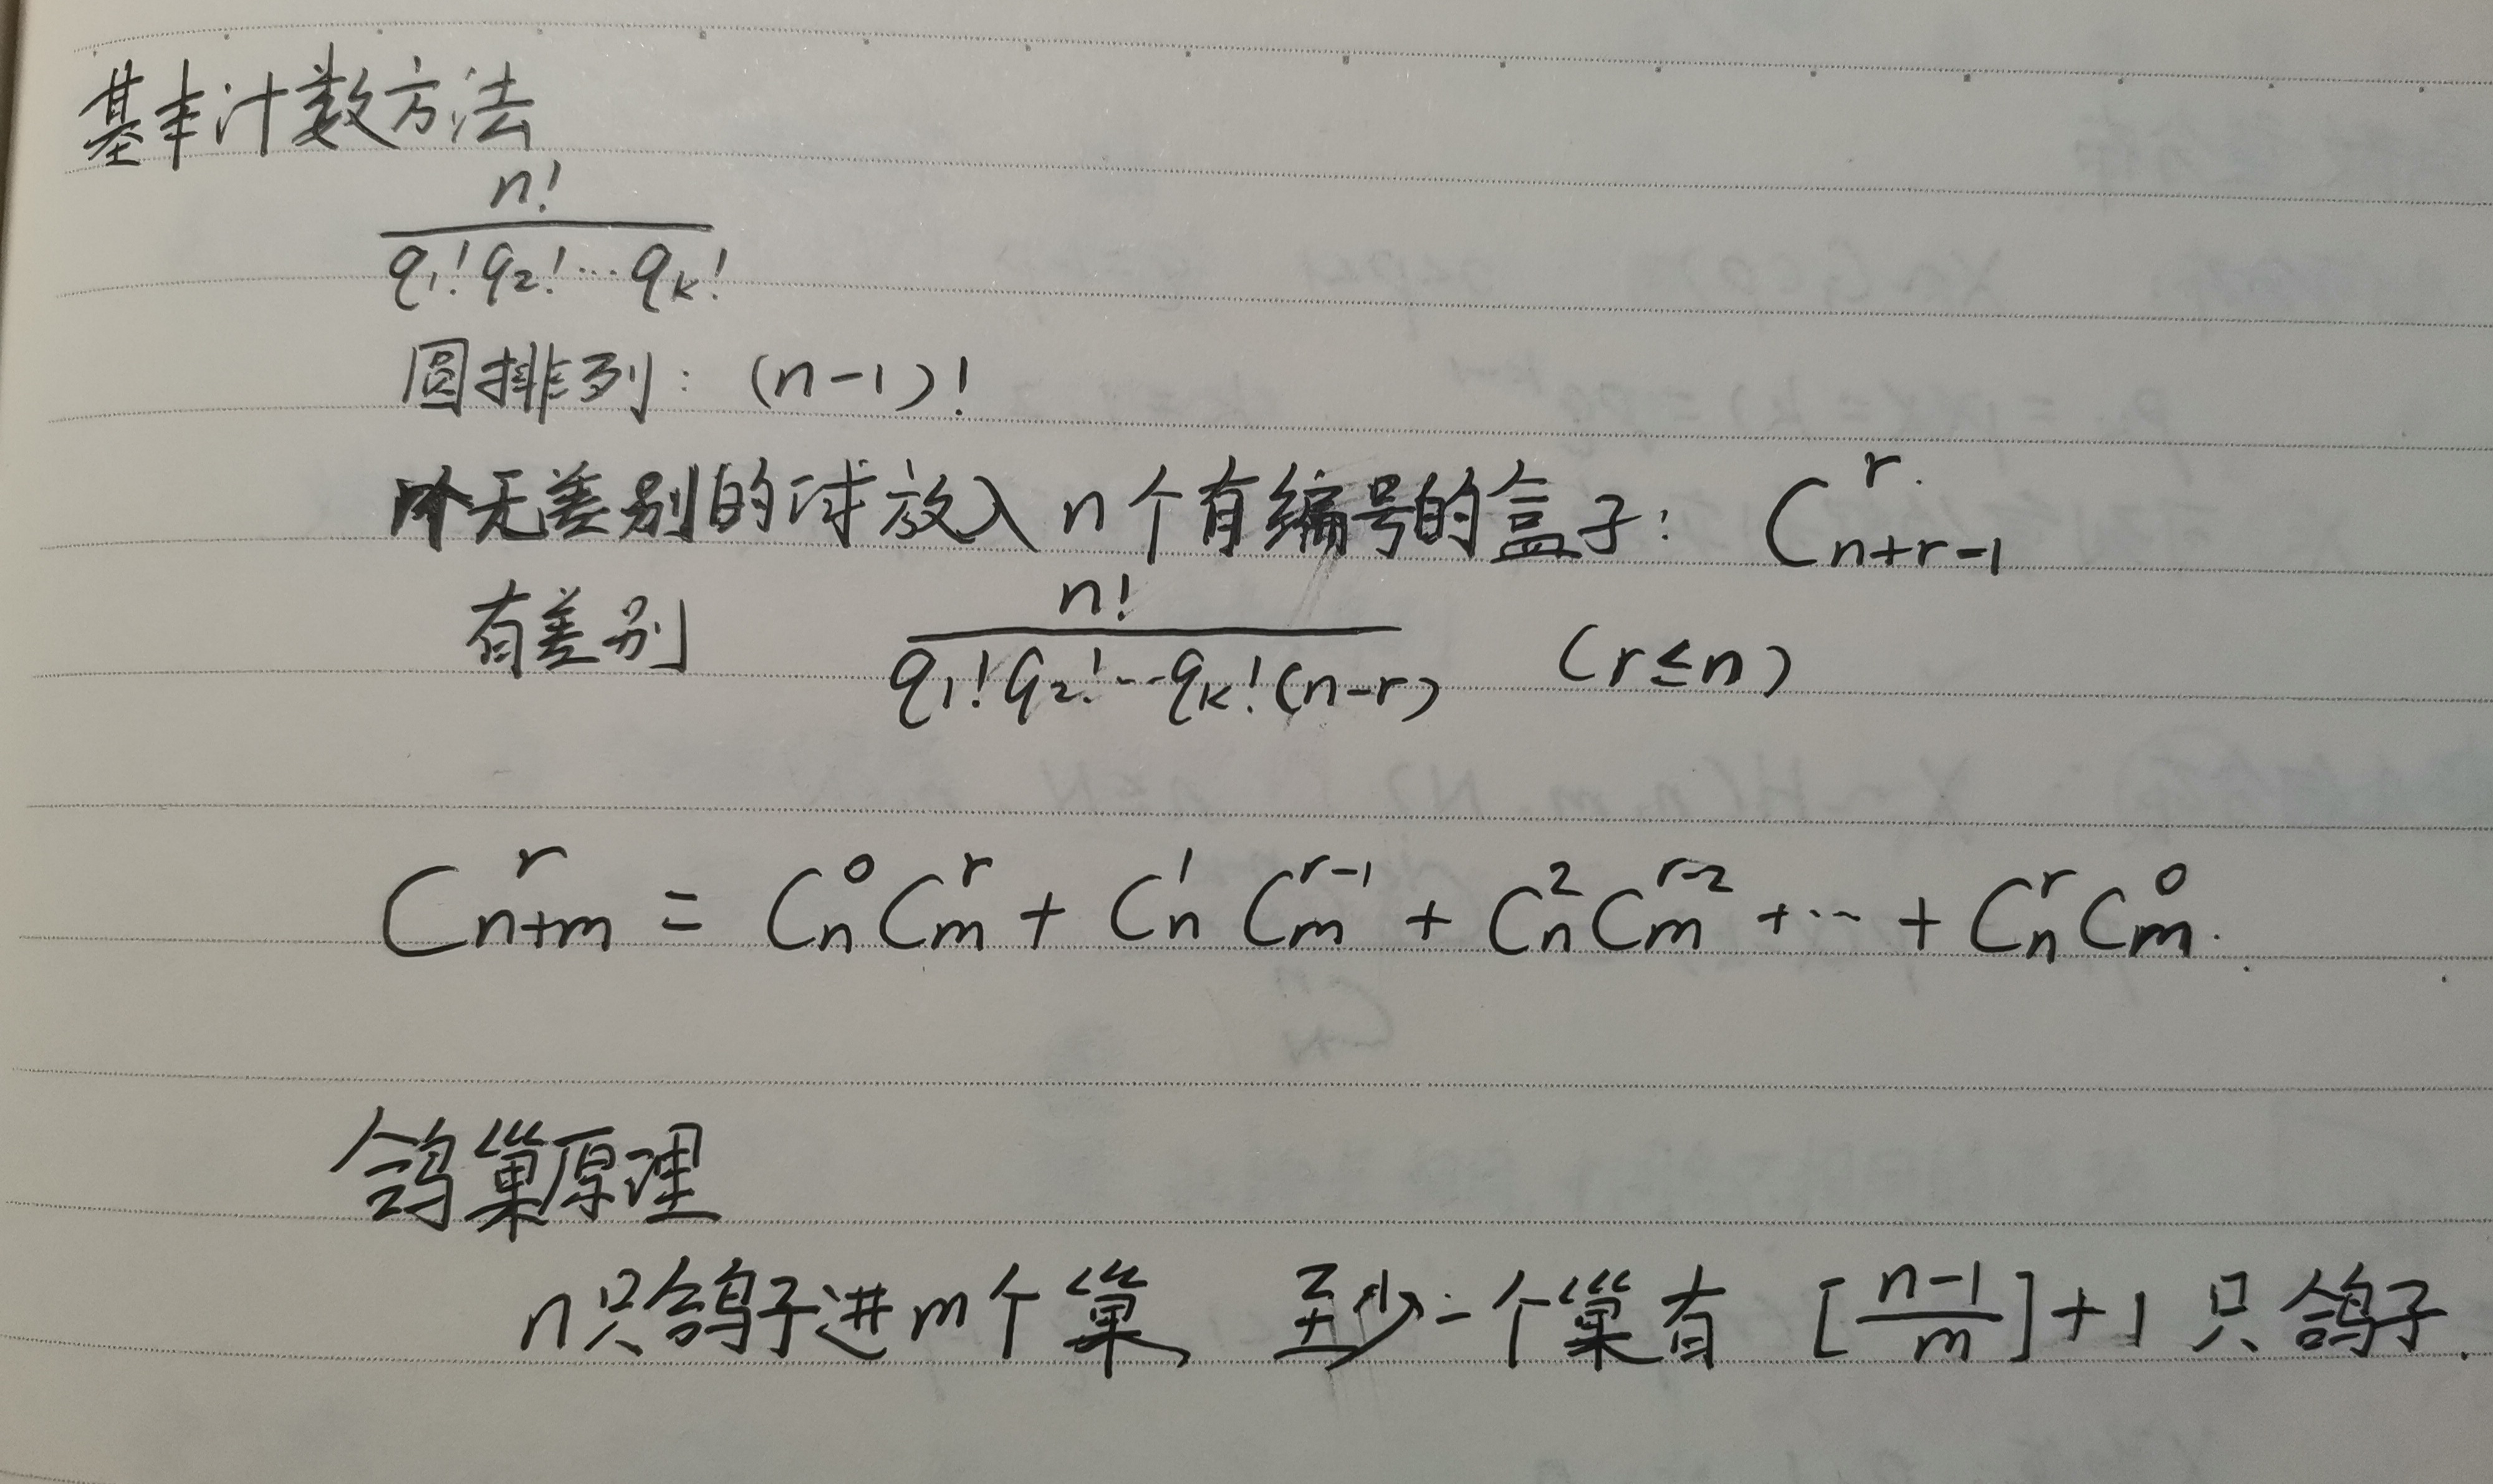 基本计数方法
n!/(q₁!q₂!…qₖ!)
圆排列：(n-1)!
个无差别的球放入n个有编号的盒子： C_{n+r-1}^{r}
有差别 n!/(q₁!q₂!…qₖ!(n-r)) (r≤n)
C_{n+m}^{r} = C_n^0 C_m^r + C_n^1 C_m^{r-1} + C_n^2 C_m^{r-2} + … + C_n^r C_m^0.
鸽巢原理
n只鸽子进m个巢，至少一个巢有 [(n-1)/m]+1 只鸽子.